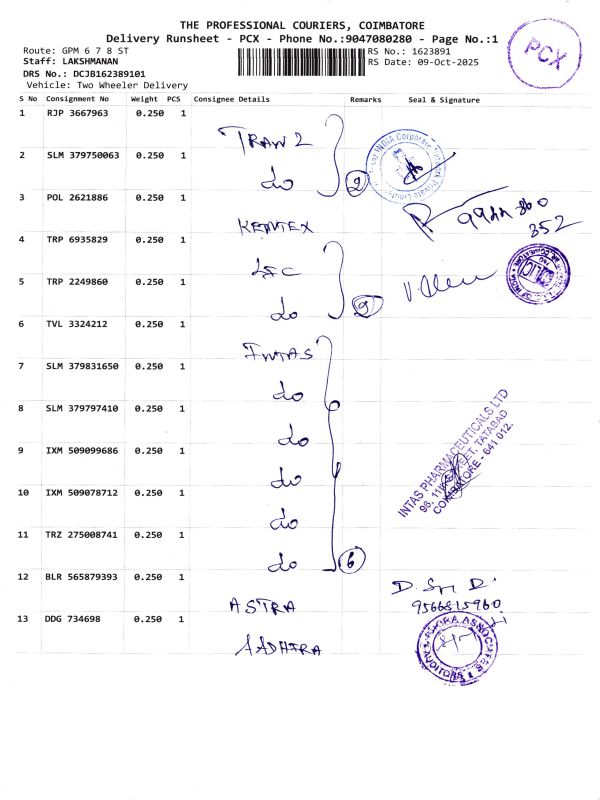 THE PROFESSIONAL COURIERS, COIMBATORE
Delivery Runsheet - PCX - Phone No.:9047080280 - Page No.:1
PCX
Route: GPM 6 7 8 ST
RS No.: 1623891
Staff: LAKSHMANAN
RS Date: 09-Oct-2025
DRS No.: DCJB162389101
Vehicle: Two Wheeler Delivery
S No Consignment No Weight PCS Consignee Details Remarks Seal & Signature
1 RJP 3667963 0.250 1
TRAN 2
2 SLM 379750063 0.250 1
do 2
INDIA Corporate Private Limited
3 POL 2621886 0.250 1
KENTEX
352
4 TRP 6935829 0.250 1
LIC
5 TRP 2249860 0.250 1
do
6 TVL 3324212 0.250 1
INTAS
7 SLM 379831650 0.250 1
do
8 SLM 379797410 0.250 1
do
9 IXM 509099686 0.250 1
do
10 IXM 509078712 0.250 1
do
11 TRZ 275008741 0.250 1
do 6
INTAS PHARMACEUTICALS LTD
96, STREET, TATABAD
COIMBATORE - 641 012.
12 BLR 565879393 0.250 1
ASTRA
9566815960
13 DDG 734698 0.250 1
AADHIRA
ASSOCIATES
AUDITORS